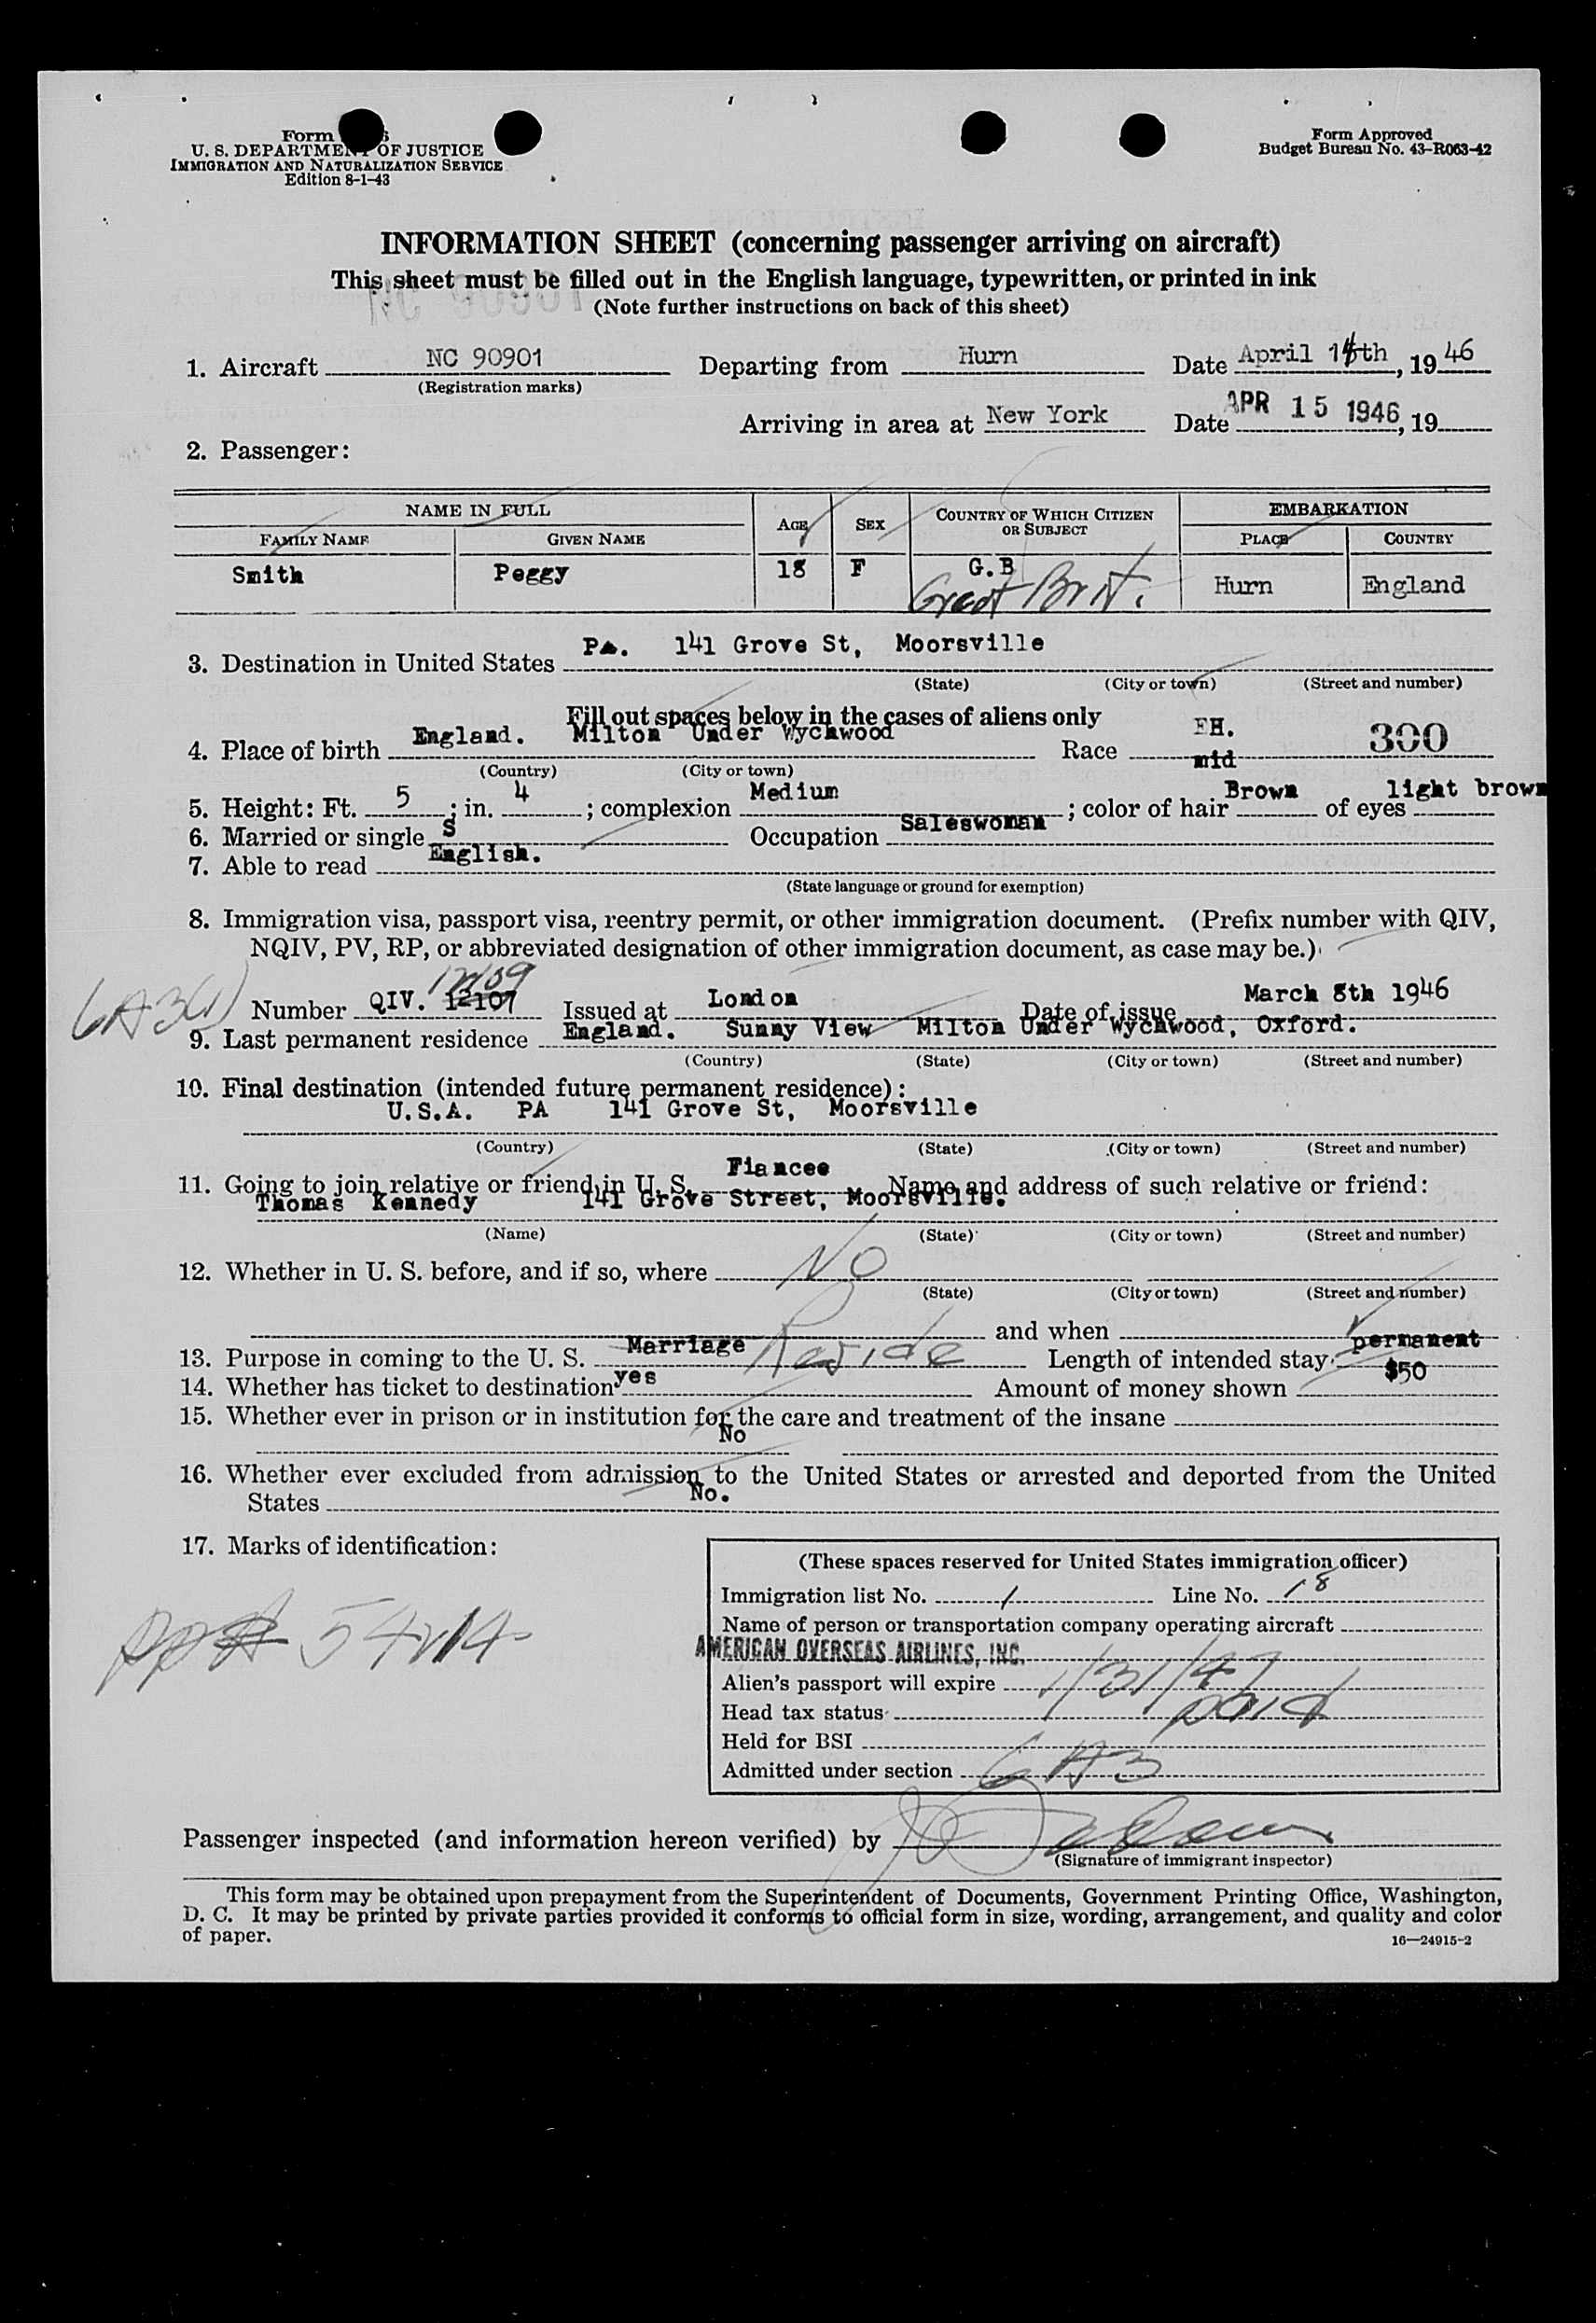 Form
U. S. DEPARTMENT OF JUSTICE
IMMIGRATION AND NATURALIZATION SERVICE
Edition 8-1-43
Form Approved
Budget Bureau No. 43-R063-42
INFORMATION SHEET (concerning passenger arriving on aircraft)
This sheet must be filled out in the English language, typewritten, or printed in ink
(Note further instructions on back of this sheet)
1. Aircraft NC 90901 Departing from Hurn Date April 14th, 1946
(Registration marks)
Arriving in area at New York Date APR 15 1946, 19
2. Passenger:
NAME IN FULL AGE SEX COUNTRY OF WHICH CITIZEN OR SUBJECT EMBARKATION
FAMILY NAME GIVEN NAME PLACE COUNTRY
Smith Peggy 18 F G.B Hurn England
Great Brit.
3. Destination in United States Pa. 141 Grove St, Moorsville
(State) (City or town) (Street and number)
Fill out spaces below in the cases of aliens only
4. Place of birth England. Milton Under Wychwood Race EH. 300
(Country) (City or town) mid
5. Height: Ft. 5; in. 4; complexion Medium; color of hair Brown of eyes light brown
6. Married or single S Occupation Saleswoman
7. Able to read English.
(State language or ground for exemption)
8. Immigration visa, passport visa, reentry permit, or other immigration document. (Prefix number with QIV,
NQIV, PV, RP, or abbreviated designation of other immigration document, as case may be.)
Number QIV. 12107 Issued at London Date of issue March 8th 1946
9. Last permanent residence England. Sunny View Milton Under Wychwood, Oxford.
(Country) (State) (City or town) (Street and number)
10. Final destination (intended future permanent residence):
U.S.A. PA 141 Grove St, Moorsville
(Country) (State) (City or town) (Street and number)
11. Going to join relative or friend in U. S. Fiancee Name and address of such relative or friend:
Thomas Kennedy 141 Grove Street, Moorsville.
(Name) (State) (City or town) (Street and number)
12. Whether in U. S. before, and if so, where No
(State) (City or town) (Street and number)
and when
13. Purpose in coming to the U. S. Marriage Reside Length of intended stay permanent
14. Whether has ticket to destination yes Amount of money shown $50
15. Whether ever in prison or in institution for the care and treatment of the insane
No
16. Whether ever excluded from admission to the United States or arrested and deported from the United
States No.
17. Marks of identification:
(These spaces reserved for United States immigration officer)
Immigration list No. 1 Line No. 18
Name of person or transportation company operating aircraft
AMERICAN OVERSEAS AIRLINES, INC.
Alien's passport will expire 1/31/47
Head tax status paid
Held for BSI
Admitted under section 6A3
Passenger inspected (and information hereon verified) by
(Signature of immigrant inspector)
This form may be obtained upon prepayment from the Superintendent of Documents, Government Printing Office, Washington,
D. C. It may be printed by private parties provided it conforms to official form in size, wording, arrangement, and quality and color
of paper.
16—24915-2